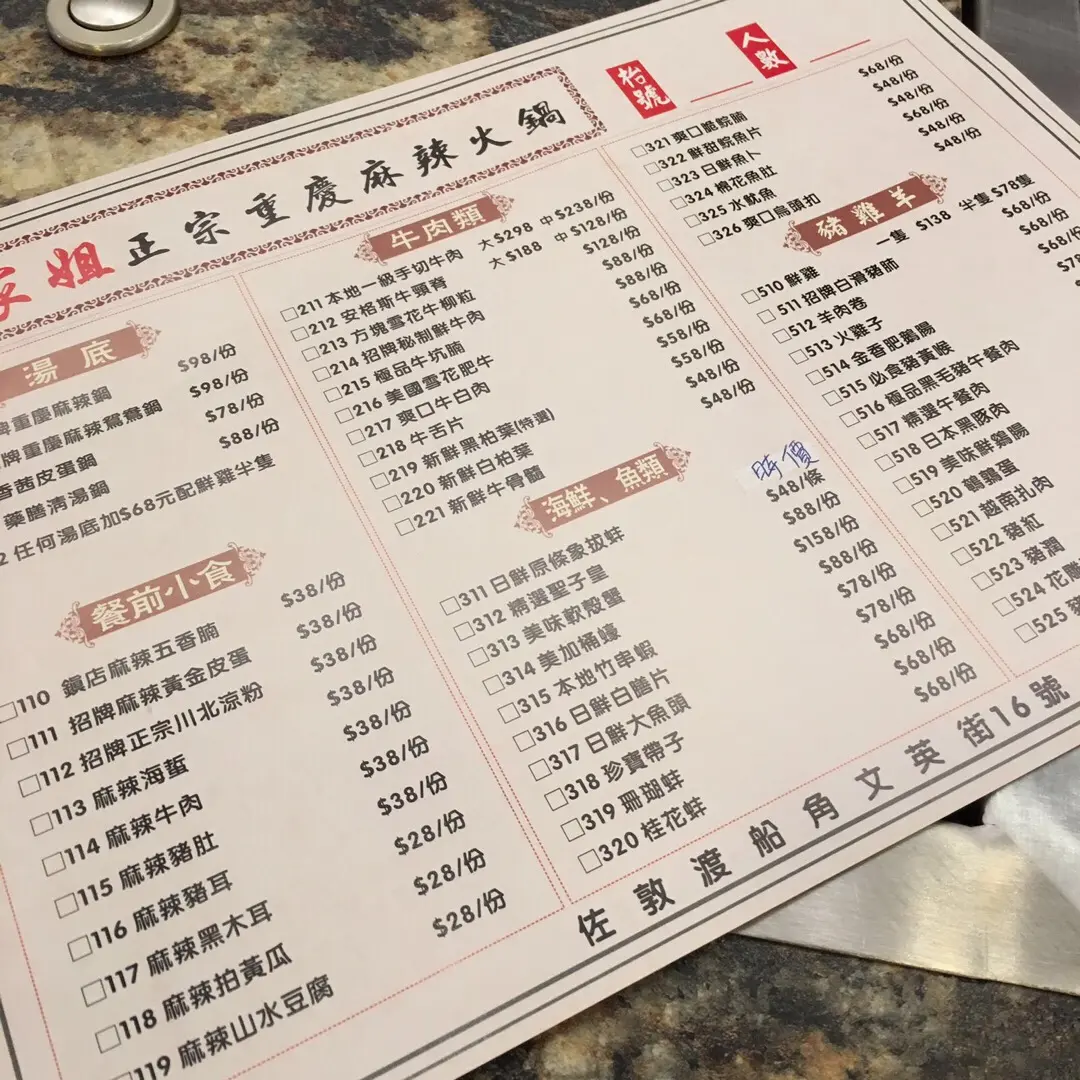 姐正宗重慶麻辣火鍋
枱號
人數
湯底
牌重慶麻辣鍋 $98/份
牌重慶麻辣鴛鴦鍋 $98/份
香茜皮蛋鍋 $78/份
藥膳清湯鍋 $88/份
2 任何湯底加$68元配鮮雞半隻
餐前小食
110 鎮店麻辣五香腩 $38/份
111 招牌麻辣黃金皮蛋 $38/份
112 招牌正宗川北涼粉 $38/份
113 麻辣海蜇 $38/份
114 麻辣牛肉 $38/份
115 麻辣豬肚 $38/份
116 麻辣豬耳 $38/份
117 麻辣黑木耳 $28/份
118 麻辣拍黃瓜 $28/份
119 麻辣山水豆腐 $28/份
牛肉類
211 本地一級手切牛肉 大$298 中$238/份
212 安格斯牛頸脊 大$188 中$128/份
213 方塊雪花牛柳粒 $128/份
214 招牌秘制鮮牛肉 $88/份
215 極品牛坑腩 $88/份
216 美國雪花肥牛 $68/份
217 爽口牛白肉 $68/份
218 牛舌片 $58/份
219 新鮮黑柏葉(特選) $58/份
220 新鮮白柏葉 $48/份
221 新鮮牛骨髓 $48/份
海鮮、魚類
311 日鮮原條象拔蚌 時價
312 精選聖子皇 $48/條
313 美味軟殼蟹 $88/份
314 美加桶蠔 $158/份
315 本地竹串蝦 $88/份
316 日鮮白膳片 $78/份
317 日鮮大魚頭 $78/份
318 珍寶帶子 $68/份
319 珊瑚蚌 $68/份
320 桂花蚌 $68/份
321 爽口脆鯇腩 $68/份
322 鮮甜鯇魚片 $48/份
323 日鮮魚卜 $48/份
324 棉花魚肚 $68/份
325 水魷魚 $48/份
326 爽口烏頭扣 $48/份
豬雞羊
510 鮮雞 一隻 $138 半隻 $78隻
511 招牌白滑豬肺 $68/份
512 羊肉卷 $68/份
513 火雞子 $68/份
514 金香肥鵝腸
515 必食豬黃喉
516 極品黑毛豬午餐肉
517 精選午餐肉
518 日本黑豚肉
519 美味鮮鷄腸
520 鵪鶉蛋
521 越南扎肉
522 豬紅
523 豬潤
524 花雕
525 豬
佐敦渡船角文英街16號